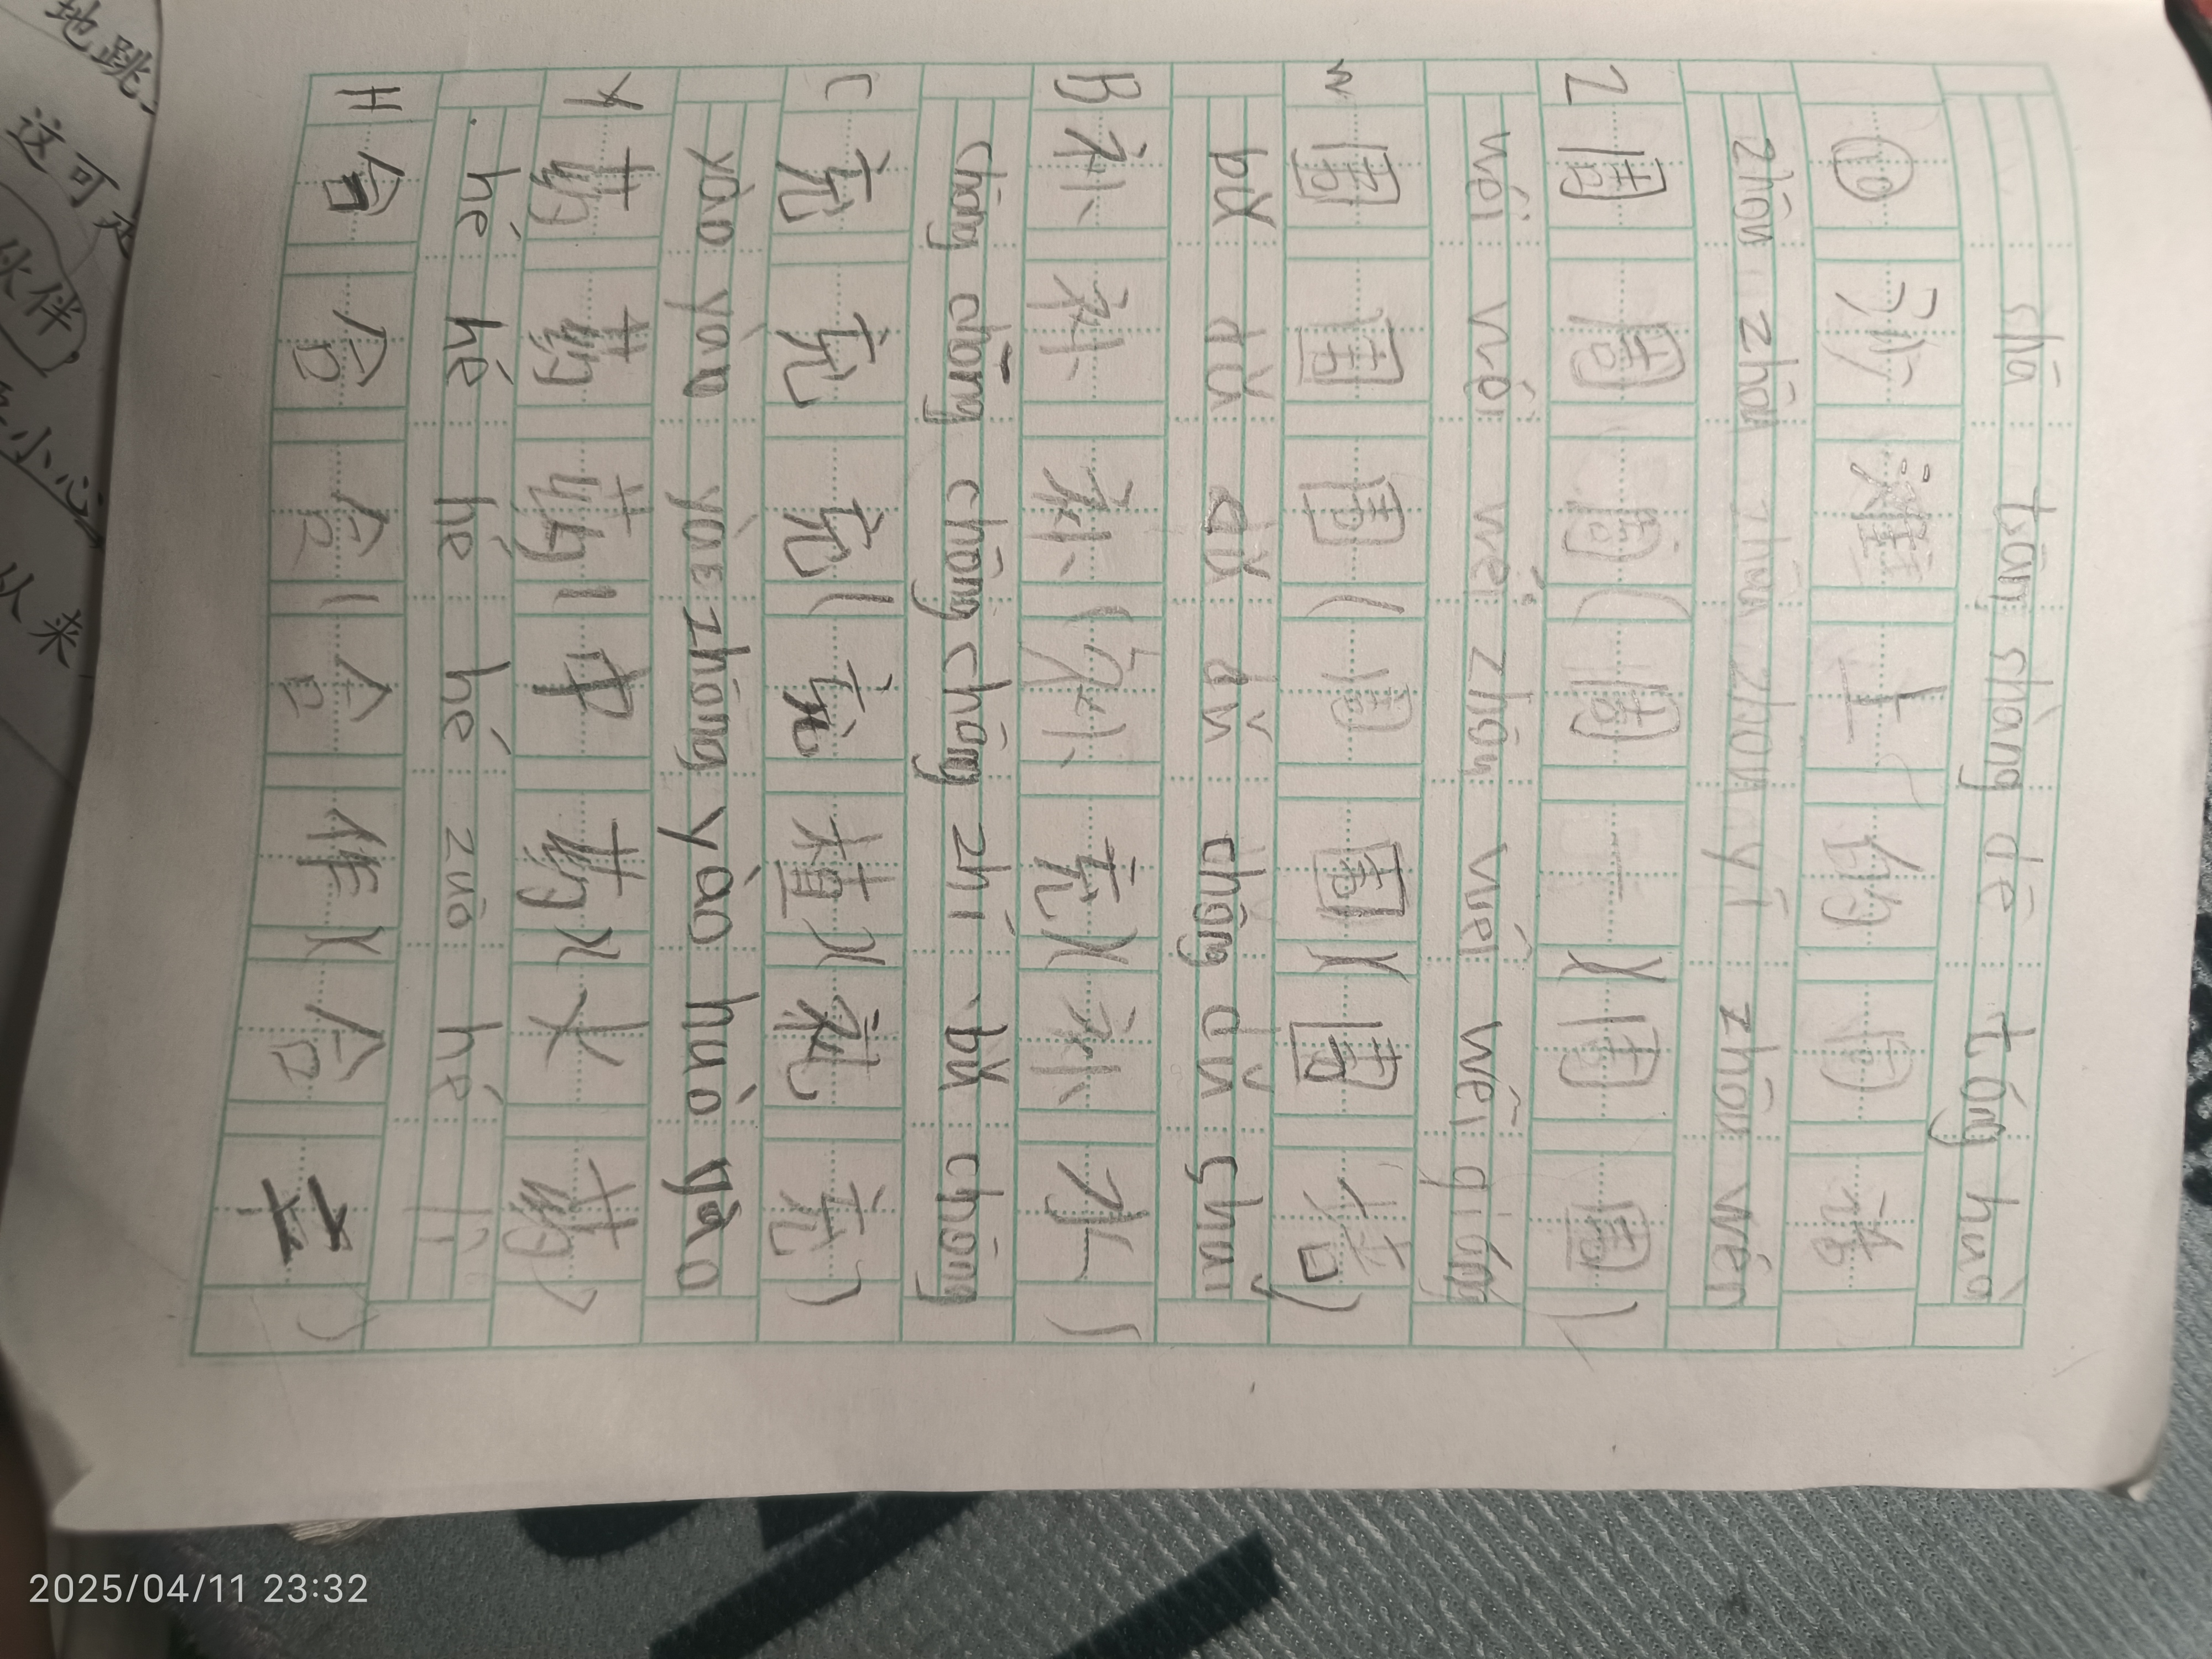 chā tūng shàng dē tóng huà
⑩ 沙 滩 上 的 同 话
zhōu zhōu zhōu zhōu yī zhōu wéi
Z 周 周 周(周 一)(周 围)
wéi wéi wéi zhōu wéi wéi gōng
W 围 围 围(周 围)(围
bǔ bǔ bǔ bǔ chōng bǔ shuǐ
B 补 补 补(补 充)(补 水)
chōng chōng chōng chōng zhí bǔ chōng
C 充 充 充(充 值)(补 充)
yào yào yào zhōng yào huǒ yào
Y 药 药 药(中 药)(火 药)
hé hé hé hé zuò hé
H 合 合 合(合 作)(合
地跳
这可
伙伴
小心
从来
2025/04/11 23:32